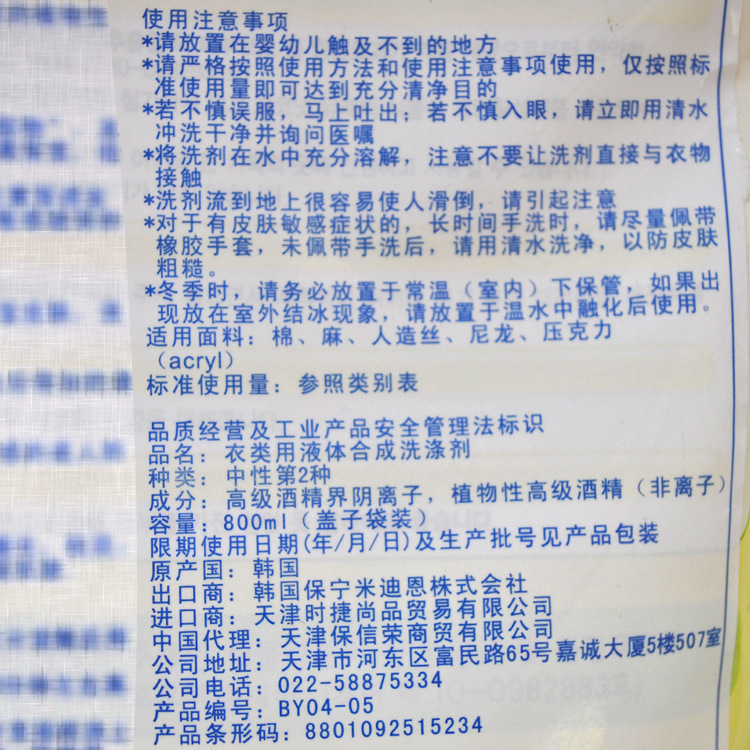 使用注意事项
*请放置在婴幼儿触及不到的地方
*请严格按照使用方法和使用注意事项使用，仅按照标
准使用量即可达到充分清净目的
*若不慎误服，马上吐出；若不慎入眼，请立即用清水
冲洗干净并询问医嘱
*将洗剂在水中充分溶解，注意不要让洗剂直接与衣物
接触
*洗剂流到地上很容易使人滑倒，请引起注意
*对于有皮肤敏感症状的，长时间手洗时，请尽量佩带
橡胶手套，未佩带手洗后，请用清水洗净，以防皮肤
粗糙。
*冬季时，请务必放置于常温（室内）下保管，如果出
现放在室外结冰现象，请放置于温水中融化后使用。
适用面料：棉、麻、人造丝、尼龙、压克力
（acryl）
标准使用量：参照类别表
品质经营及工业产品安全管理法标识
品名：衣类用液体合成洗涤剂
种类：中性第2种
成分：高级酒精界阴离子，植物性高级酒精（非离子）
容量：800ml（盖子袋装）
限期使用日期(年/月/日)及生产批号见产品包装
原产国：韩国
出口商：韩国保宁米迪恩株式会社
进口商：天津时捷尚品贸易有限公司
中国代理：天津保信荣商贸有限公司
公司地址：天津市河东区富民路65号嘉诚大厦5楼507室
公司电话：022-58875334
产品编号：BY04-05
产品条形码：8801092515234